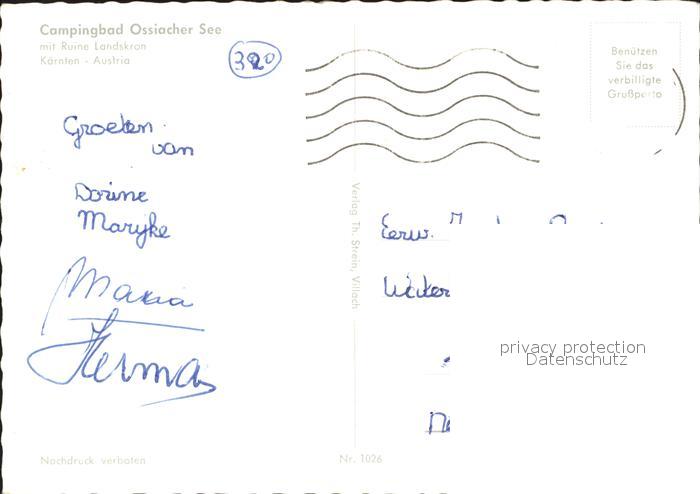 Campingbad Ossiacher See
mit Ruine Landskron
Kärnten - Austria
390
Benützen
Sie das
verbilligte
Grußporto
Groeten
van
Dorine
Marijke
Maria
Herma
Verlag Th. Strein, Villach
Eerw.
privacy protection
Datenschutz
Nachdruck verboten
Nr. 1026